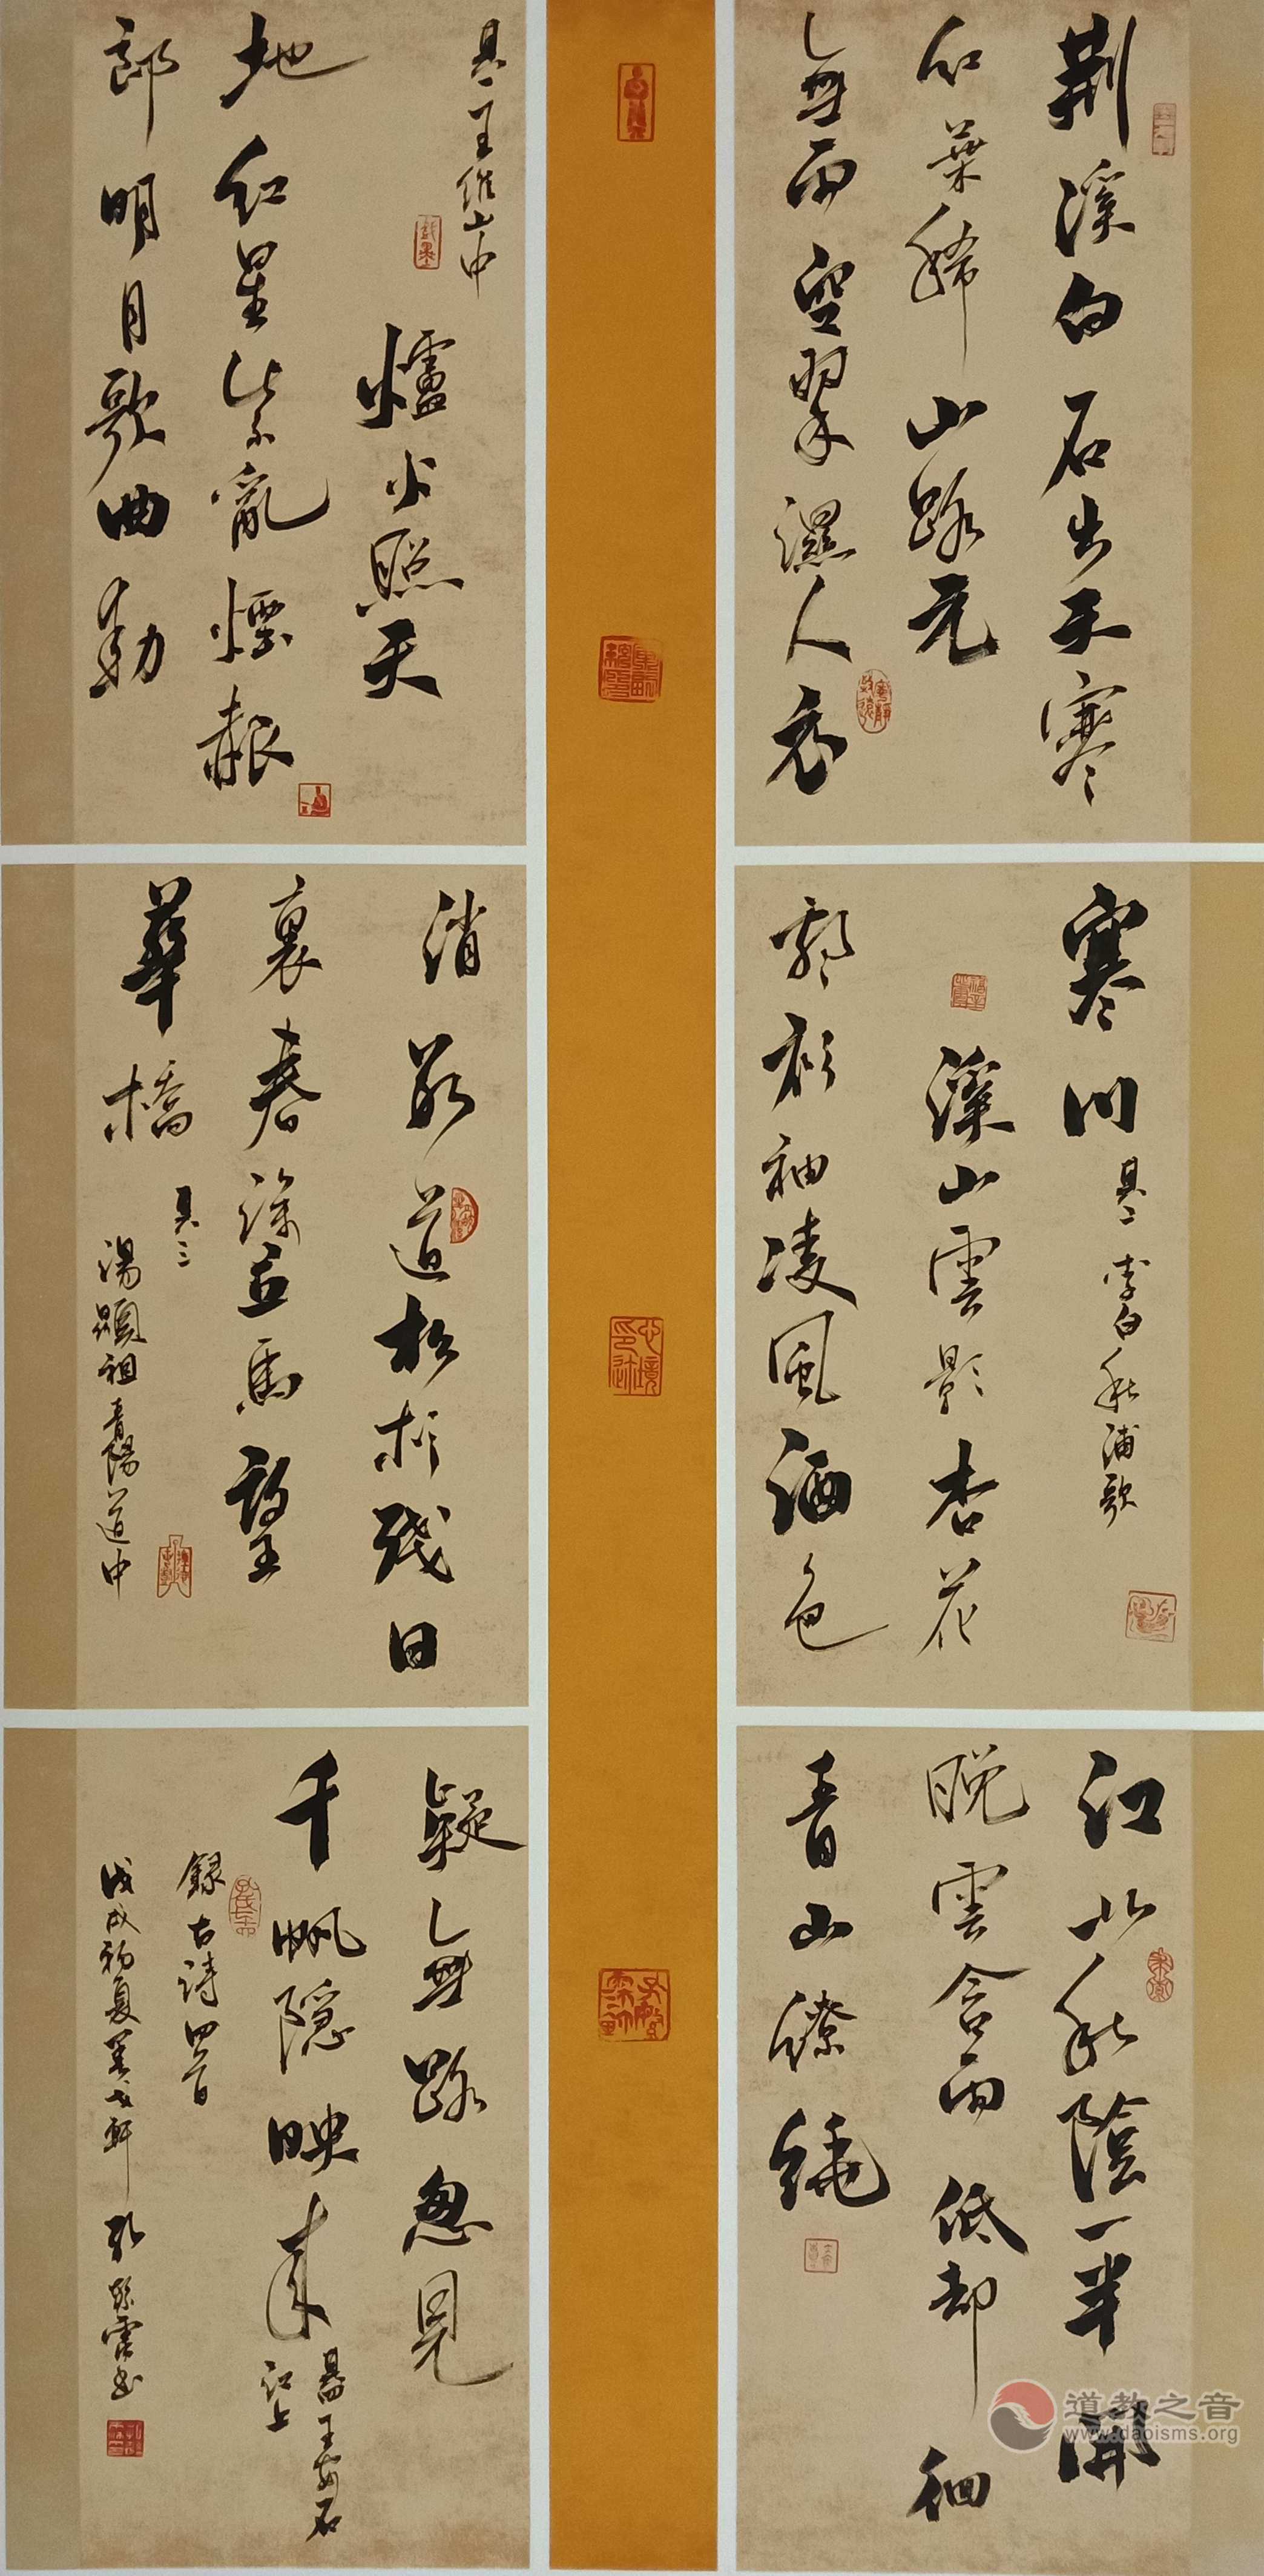 荊溪白石出天寒
紅葉稀山路元
無雨空翠濕人衣
其一王維山中
爐火照天
地紅星紫亂煙赧
郎明月歌曲動
寒川
其二 李白秋浦歌
溪山雲影杏花
飄衫袖凌風酒色
消數道松杉殘日
裏春深立馬望
華橋
其三
湯顯祖青陽道中
江北秋陰一半開
晚雲含雨低却徊
青山繚繞
疑無路忽見
千帆隱映來
其四王安石
江上
錄古詩四首
戊戌初夏
道教之音
www.daoisms.org